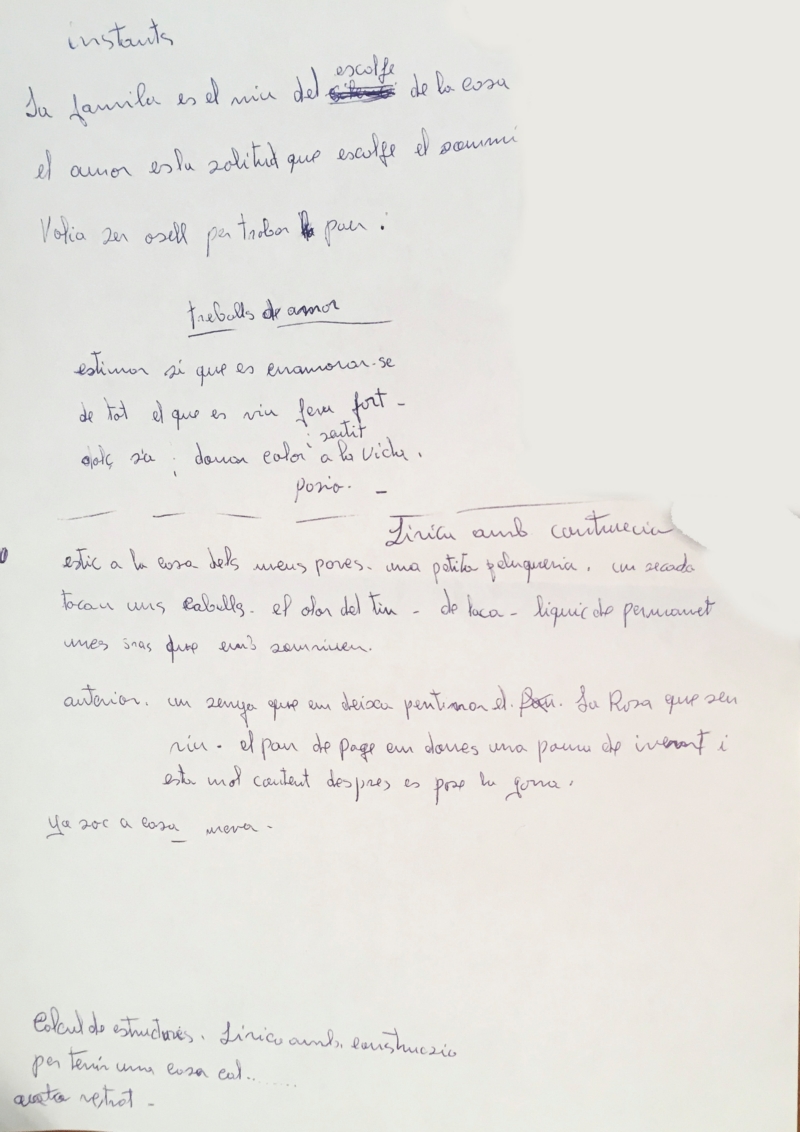 instants
escolfe
La familia es el niu del de la casa
el amor es la solitud que escolfe el somni
Volia ser osell per trobar pau.
treballs de amor
estimar si que es enamorar-se
de tot el que es viu feru fort -
i sentit
dolç s'a ; donar calor a la vida.
posio. -
Lirica amb contruccia
estic a la casa dels meus pares. una petita peluqueria. un secado
tocan uns caballs. el olor del tin - de laca - liquit de permanet
unes iras que emb somriuen.
anterior. un senya que em deixa pentinar el. La Rosa que seu
riu. el pan de page em dones una poma de ivernt i
esta mol content despres es pose la gorra.
ya soc a casa meva.
Calcul de estructures. Lirica amb construzio
per tenir una cosa cal........
retrat -